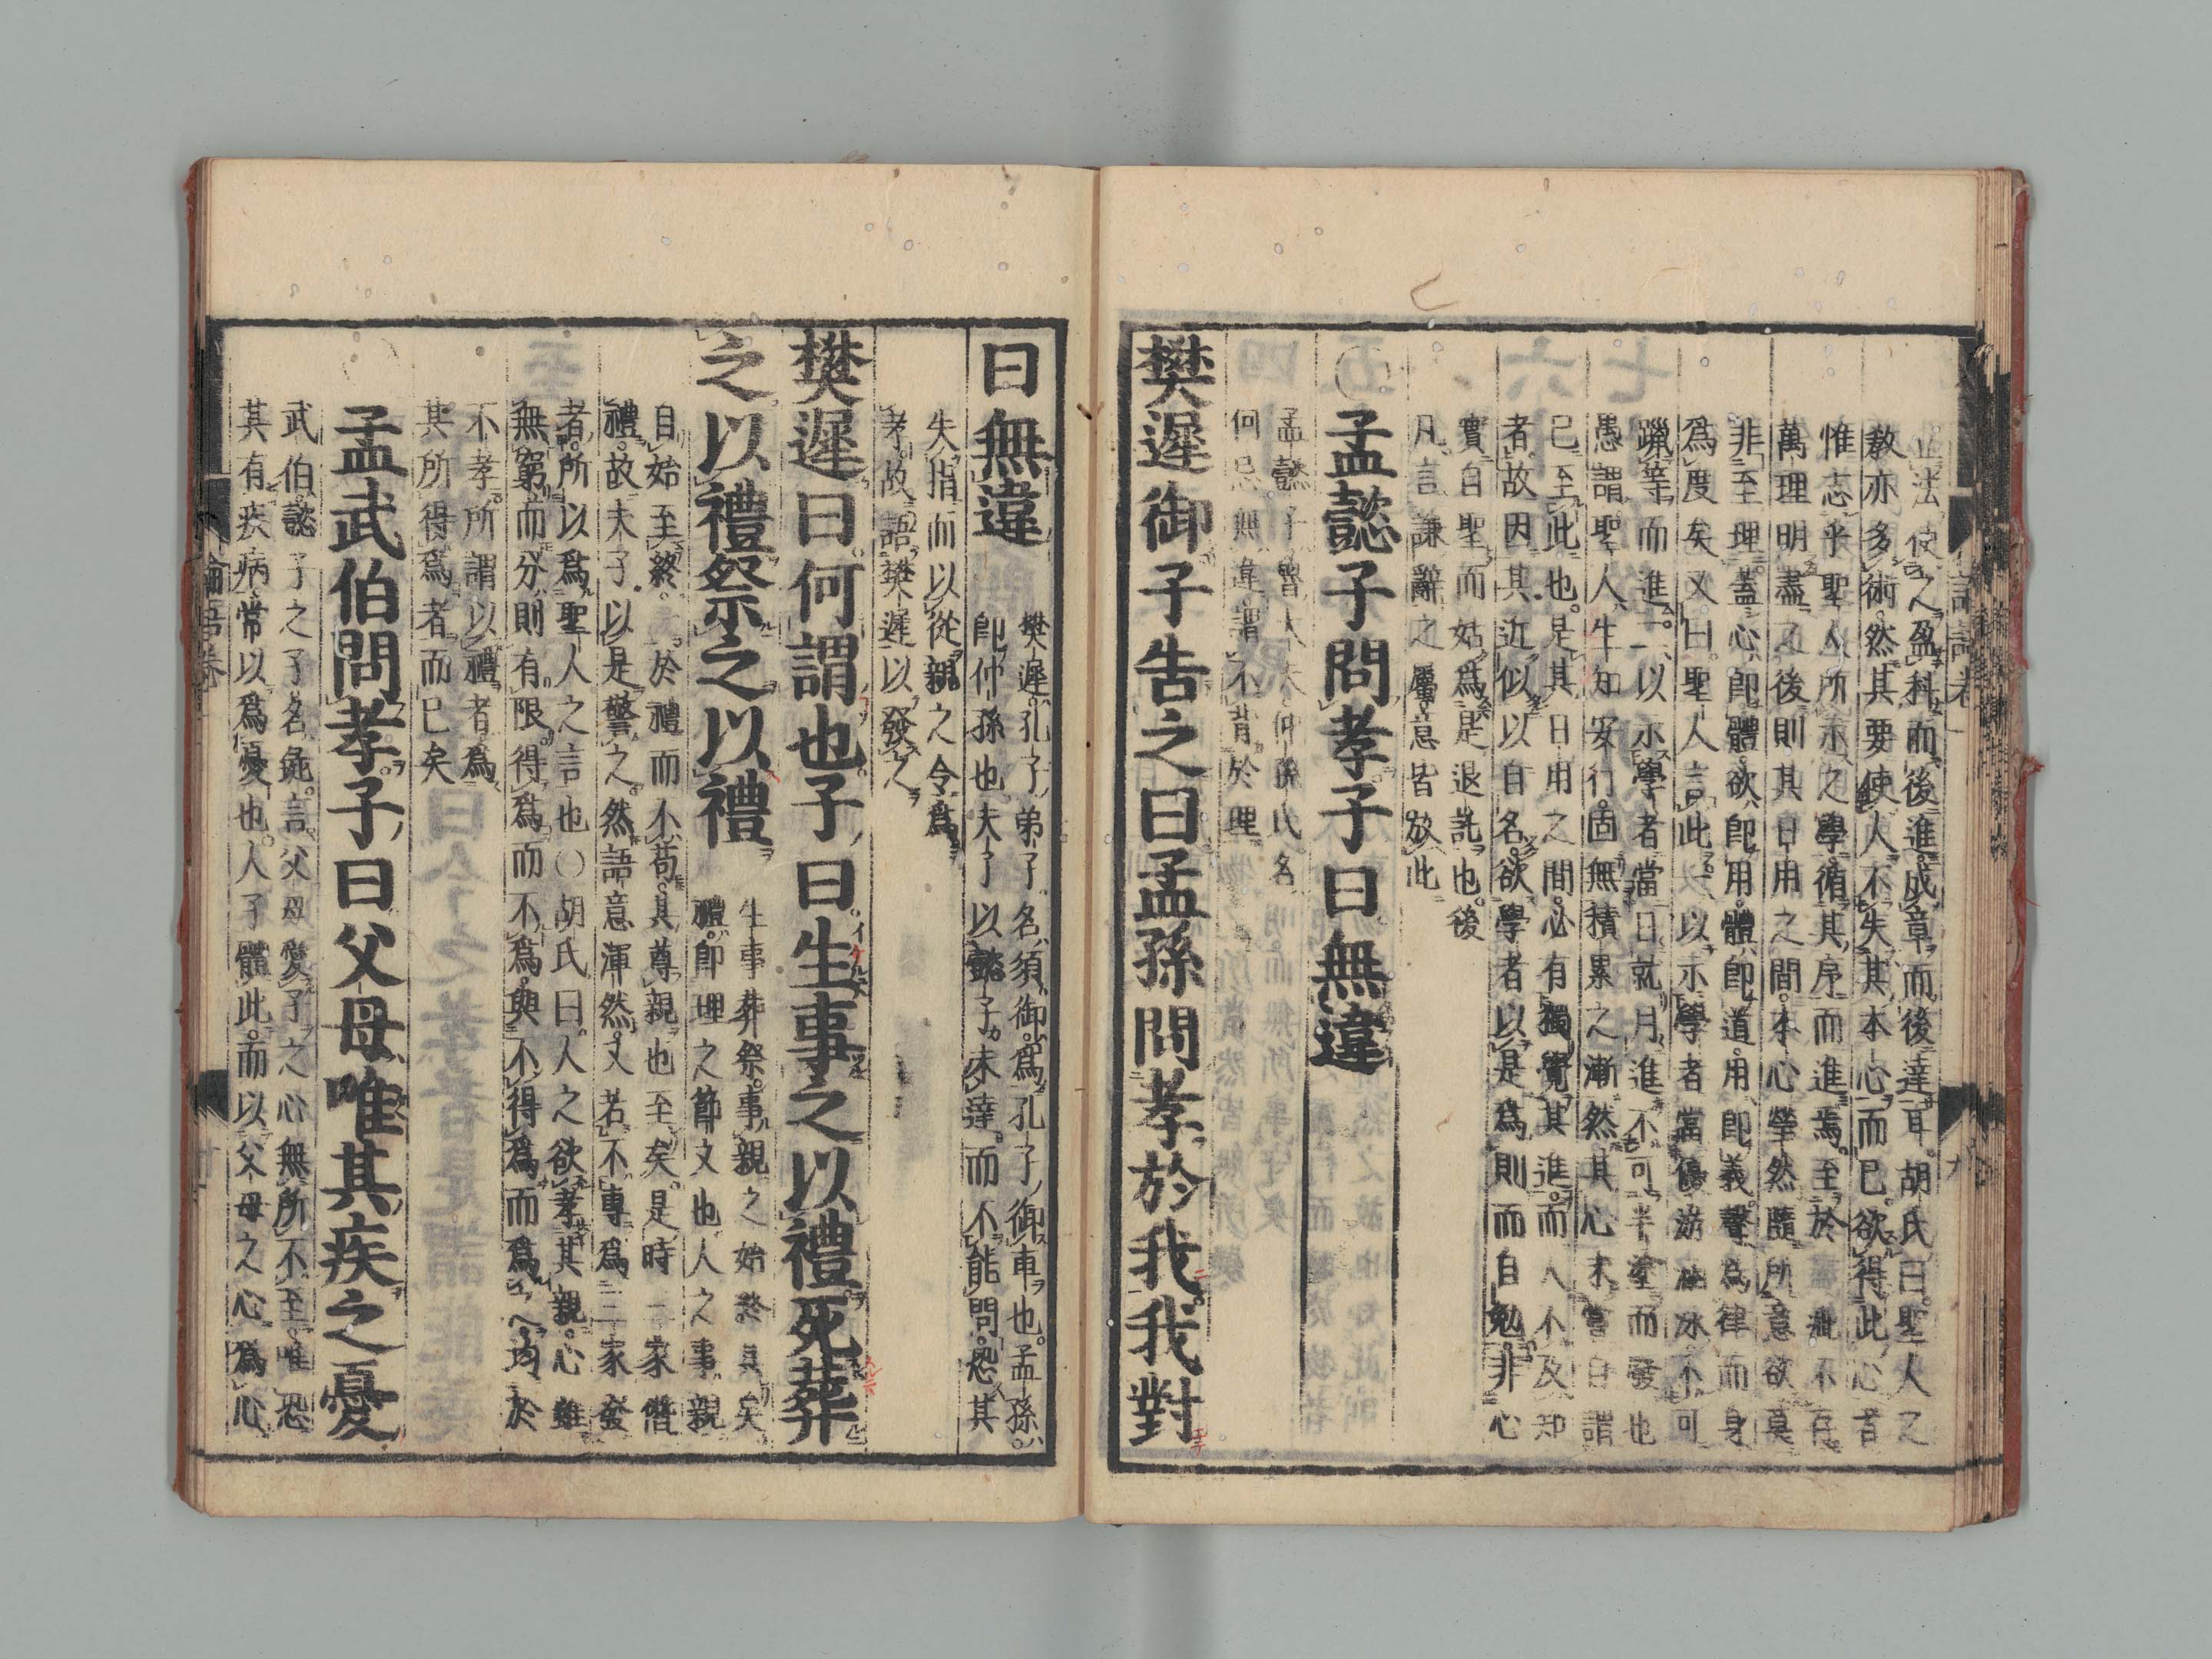 立法使人盈科而後進成章而後達耳胡氏曰聖人之
教亦多術然其要使人不失其本心而已欲得此心者
惟志乎聖人所示之學循其序而進焉至於一疵不存
萬理明盡之後則其日用之間本心瑩然隨所意欲莫
非至理蓋心卽體欲卽用體卽道用卽義聲爲律而身
爲度矣又曰聖人言此一以示學者當優游涵泳不可
躐等而進一以示學者當日就月進不可半塗而廢也
愚謂聖人生知安行固無積累之漸然其心未嘗自謂
已至此也是其日用之間必有獨覺其進而人不及知
者故因其近似以自名欲學者以是爲則而自勉非心
實自聖而姑爲是退託也後
凡言謙辭之屬意皆放此
○孟懿子問孝子曰無違
孟懿子魯大夫仲孫氏名
何忌無違謂不背於理
樊遲御子告之曰孟孫問孝於我我對
曰無違
樊遲孔子弟子名須御爲孔子御車也孟孫
卽仲孫也夫子以懿子未達而不能問恐其
失指而以從親之令爲
孝故語樊遲以發之
樊遲曰何謂也子曰生事之以禮死葬
之以禮祭之以禮
生事葬祭事親之始終具矣
禮卽理之節文也人之事親
自始至終於禮而不苟其尊親也至矣是時三家僭
禮故夫子以是警之然語意渾然又若不專爲三家發
者所以爲聖人之言也○胡氏曰人之欲孝其親心雖
無窮而分則有限得爲而不爲與不得爲而爲之均於
不孝所謂以禮者爲
其所得爲者而已矣
孟武伯問孝子曰父母唯其疾之憂
武伯懿子之子名彘言父母愛子之心無所不至唯恐
其有疾病常以爲憂也人子體此而以父母之心爲心
論語卷一